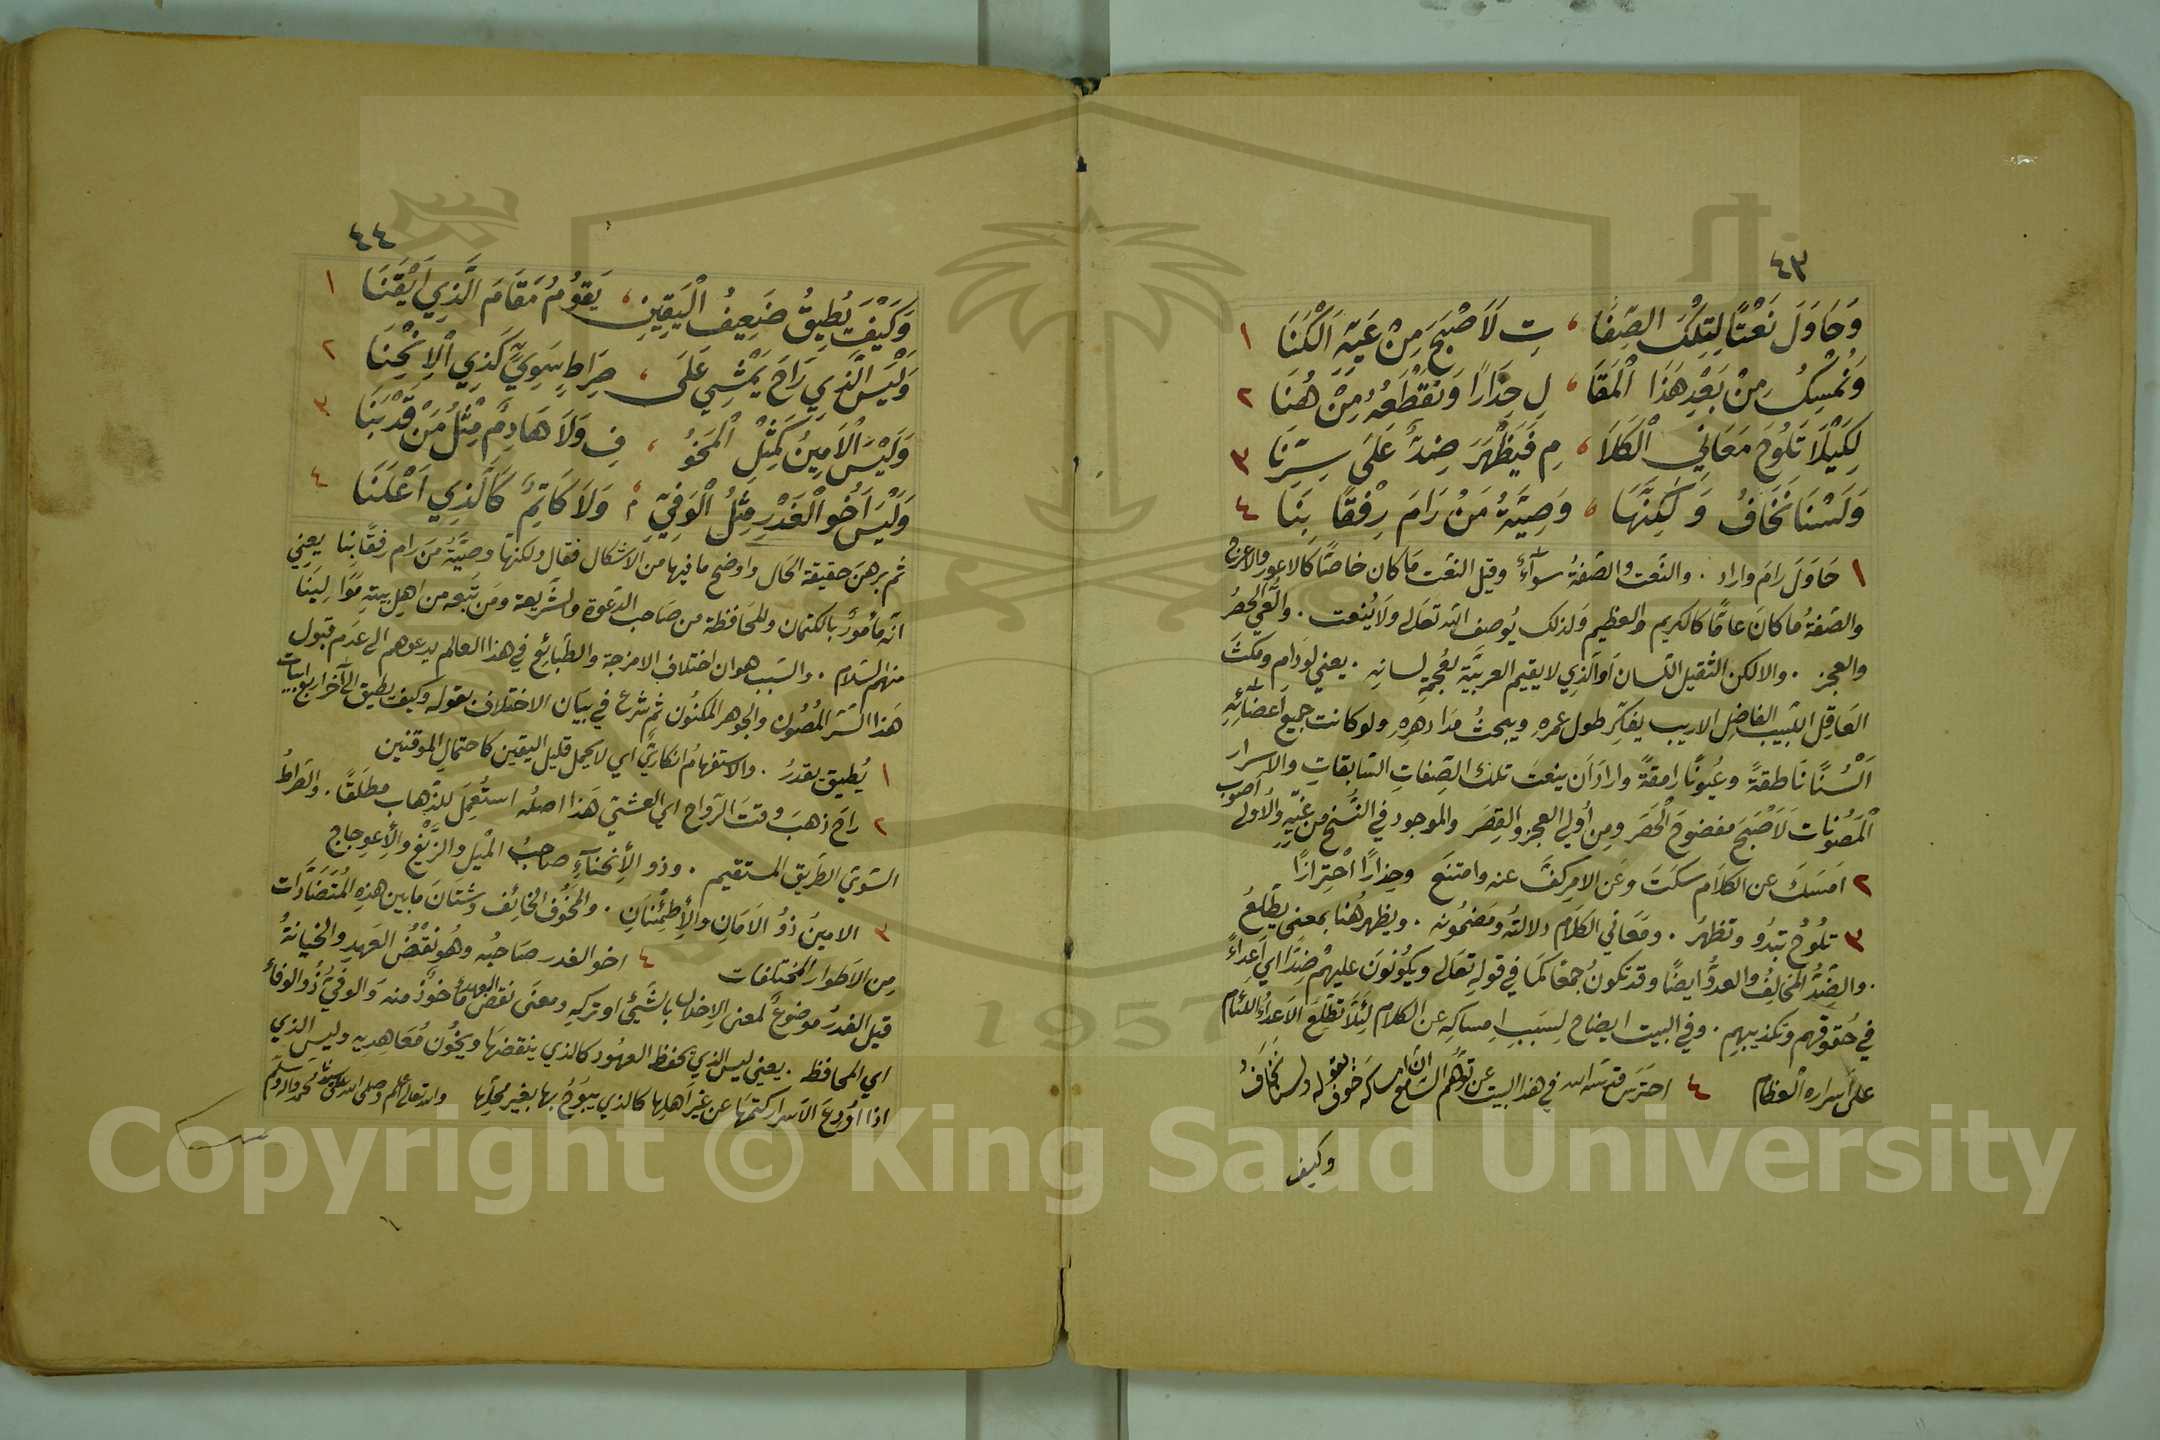 ٤٣
وَحَاوَلَ نَعْتًا لِتِلْكَ الصِّفَا ، تِ لَاَصْبَحَ مِنْ عَيِّهِ اَلْكَنَا ١
وَنُمْسِكُ مِنْ بَعْدِ هٰذَا الْمَقَا ، لِ حِذَارًا وَنَقْطَعُهُ مِنْ هُنَا ٢
لِكَيْلَا تَلُوحَ مَعَانِي الْكَلَا ، مِ فَيَظْهَرَ ضِدٌّ عَلَى سِرِّنَا ٣
وَلَسْنَا نَخَافُ وَلٰكِنَّهَا ، وَصِيَّةُ مَنْ رَامَ رِفْقًا بِنَا ٤
١ حَاوَلَ رامَ واراد . والنّعت والصّفةُ سوآءٌ وقيل النعْت مَا كان خاصًّا كالاعور والاعرج
والصّفةُ ما كانَ عامًّا كالكريم والعظيم وَلذلك يُوصف الله تعالى ولَا يُنعت . والْعَيُّ الحصرُ
والعجز . والالكن الثقيل اللّسان اَو الَّذِي لا يقيم العربيَّة لعُجمةِ لسانِهِ . يعني لو دَام ومكثَ
العَاقِلُ اللبيب الفاضِل الاريب يفكّر طول عمرهِ ويبحثُ مَدا دهرِهِ ولو كانت جميع اَعضآئِهِ
اَلْسُنًا نَاطقةً وعُيونًا رامقةً وارادَ اَن ينعتَ تلك الصِّفاتِ السّابقاتِ والاسرار
الْمَصُونَات لَاَصْبَحَ مفضوحَ الْحَصر ومِن اُولي العجز والقِصَر والموجود في النُّسَخ من عَيِّهِ والاولى اصوب
٢ امسَكَ عن الكلَام سكَتَ وعَن الامر كفَّ عنه وامتنَعَ وحِذارًا احْتِرازًا
٣ تلُوحُ تبدُو وتظهرُ . ومَعَاني الكلَام دلالتُهُ ومَضمُونه . ويظهرُ هُنا بمعنى يطّلِعُ
. والضّدُّ المُخالِفُ والعدوُّ ايضًا وقد تكونُ جمعًا كمَا في قولِهِ تعَالى ويكُونُونَ عليهِمْ ضِدًّا اي اَعداءً
في حُقوقهم وتكذيبهِم . وفي البيت ايضاح لِسبَبِ اِمساكِهِ عن الكلام لِئَلَّا تطّلِعَ الاَعداءُ اللئام
علَى اَسراره العظام ٤ احترَس قدسَ الله في هذا البيت عن توَهُّم السَّامع انّ امساكَه خوف بقوله ولسنا نخَافُ
وكيف
٤٤
وَكَيْفَ يُطِيقُ ضَعِيفُ الْيَقِينِ ، يَقُومُ مَقَامَ الَّذِي اَيْقَنَا ١
وَلَيْسَ الَّذِي رَاحَ يَمْشِي عَلَى ، صِرَاطٍ سَوِيٍّ كَذِي الْاِنْحِنَا ٢
وَلَيْسَ الْاَمِينُ كَمِثْلِ الْمَخُو ، فِ وَلَا هَادِمٌ مِثْلُ مَنْ قَدْ بَنَا ٣
وَلَيْسَ اَخُو الْغَدْرِ مِثْلُ الْوَفِيِّ ، وَلَا كَاتِمٌ كَالَّذِي اَعْلَنَا ٤
ثم برهنَ حقيقة الحَال واوضح ما فيها من الاشكال فقال ولكنهَا وصيَّةُ مَن رام رفقًا بِنا يعني
انّه مأمورٌ بالكتمان وللمحَافظة من صَاحب الدّعوة والشّريعة ومَن تَبعه من اهل بيتِهِ مَوَالِينَا
منهم السّلام . والسّبب هو ان اختلاف الامزجة والطّبائع في هذا العالم يدعوهم الى عدَم قبول
هَذا السّر المُصون والجوهر المكنُون ثم شرع في بيَان الاختلاف بقوله وكيف يطيق الى آخر اربع ابيات
١ يُطيق يقدرُ . والاستفهامُ انكاريٌّ اي لا يحمل قليل اليقين كاحتمال الموقنين
٢ راحَ ذهبَ وقتَ الرّواح اي العشيّ هَذا اصلُه استُعمِلَ للذّهاب مطلَقًا . والصِّراطُ
السّويّ الطريق المستقيم . وذو الاِنحنآءِ صاحبُ المْيل والزَّيْغ والاِعوِجاج
٣ الامينُ ذوُ الاَمَانِ والاِطمِئْنانِ . والمخُوف الخائِف وشتَانَ ما بين هذِهِ المُتضَادَّات
مِن الاَطوار المُختلفات ٤ اخو الغدر صَاحبُه وهُو نقضُ العَهد والخيانةُ
قيل الغدرُ موضوعٌ لمعنى الاِخلال بالشَّيئ او تركِهِ ومعنى نقض العهد مأخوذٌ منه وَالوفيُّ ذُو الوفاء
اي المحافظ . يعني ليس الذي يحفظ العهُود كالذي ينقضهَا ويخُون مُعَاهِديه وليس الذي
اذا اُودِعَ الاَسرار كتمهَا عن غير اَهلِها كالذي يبُوحُ بها بغير محلِّها والله تعالى اعلم وصلى الله على محمد واله وسلم